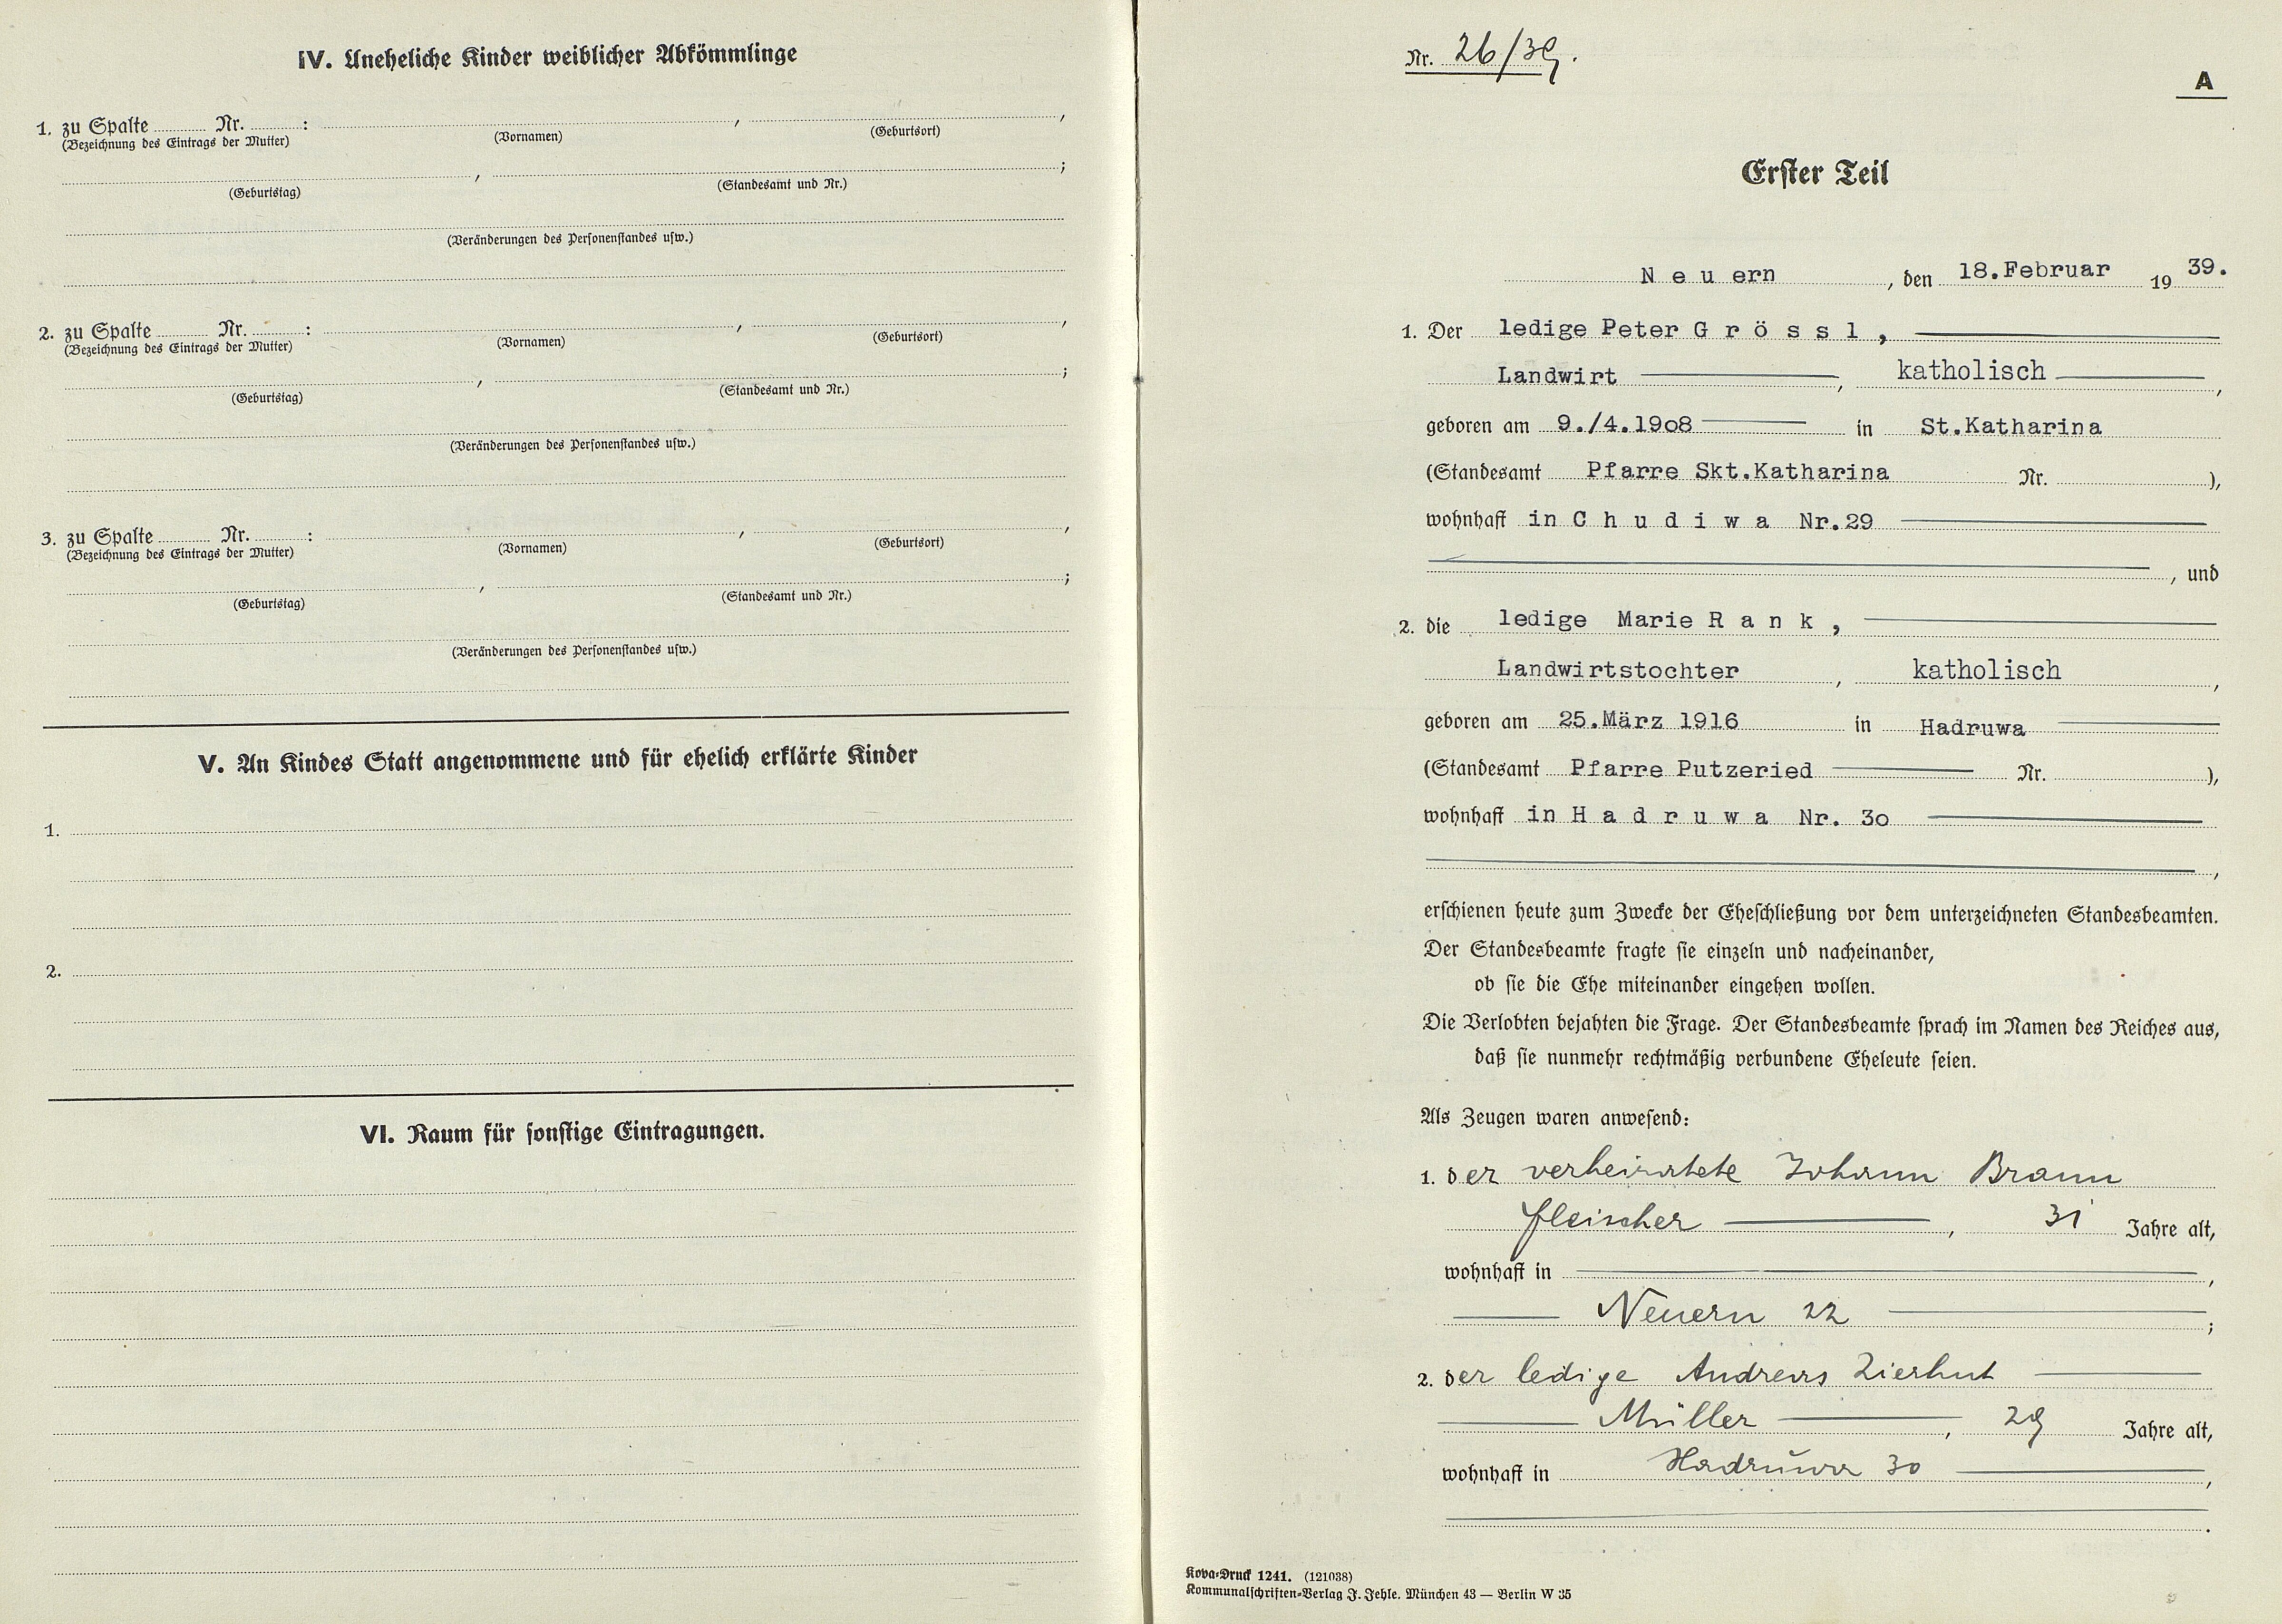 IV. Uneheliche Kinder weiblicher Abkömmlinge
1. zu Spalte Nr. : , ,
(Bezeichnung des Eintrags der Mutter) (Vornamen) (Geburtsort)
, ;
(Geburtstag) (Standesamt und Nr.)
(Veränderungen des Personenstandes usw.)
2. zu Spalte Nr. : , ,
(Bezeichnung des Eintrags der Mutter) (Vornamen) (Geburtsort)
, ;
(Geburtstag) (Standesamt und Nr.)
(Veränderungen des Personenstandes usw.)
3. zu Spalte Nr. : , ,
(Bezeichnung des Eintrags der Mutter) (Vornamen) (Geburtsort)
, ;
(Geburtstag) (Standesamt und Nr.)
(Veränderungen des Personenstandes usw.)
V. An Kindes Statt angenommene und für ehelich erklärte Kinder
1.
2.
VI. Raum für sonstige Eintragungen.
Nr. 26/39.
A
Erster Teil
N e u ern , den 18.Februar 19 39.
1. Der ledige Peter G r ö s s l ,
Landwirt , katholisch ,
geboren am 9./4.19o8 in St.Katharina
(Standesamt Pfarre Skt.Katharina Nr. ),
wohnhaft in C h u d i w a Nr.29
, und
2. die ledige Marie R a n k ,
Landwirtstochter , katholisch ,
geboren am 25.März 1916 in Hadruwa
(Standesamt Pfarre Putzeried Nr. ),
wohnhaft in H a d r u w a Nr. 3o
,
erschienen heute zum Zwecke der Eheschließung vor dem unterzeichneten Standesbeamten.
Der Standesbeamte fragte sie einzeln und nacheinander,
ob sie die Ehe miteinander eingehen wollen.
Die Verlobten bejahten die Frage. Der Standesbeamte sprach im Namen des Reiches aus,
daß sie nunmehr rechtmäßig verbundene Eheleute seien.
Als Zeugen waren anwesend:
1. der verheiratete Johann Braun
Fleischer , 31 Jahre alt,
wohnhaft in ,
Neuern 22 ;
2. der ledige Andreas Zierhut
Müller , 29 Jahre alt,
wohnhaft in Hadruwa 30 ,
.
Kova-Druck 1241. (121038)
Kommunalschriften-Verlag J. Jehle. München 43 — Berlin W 35